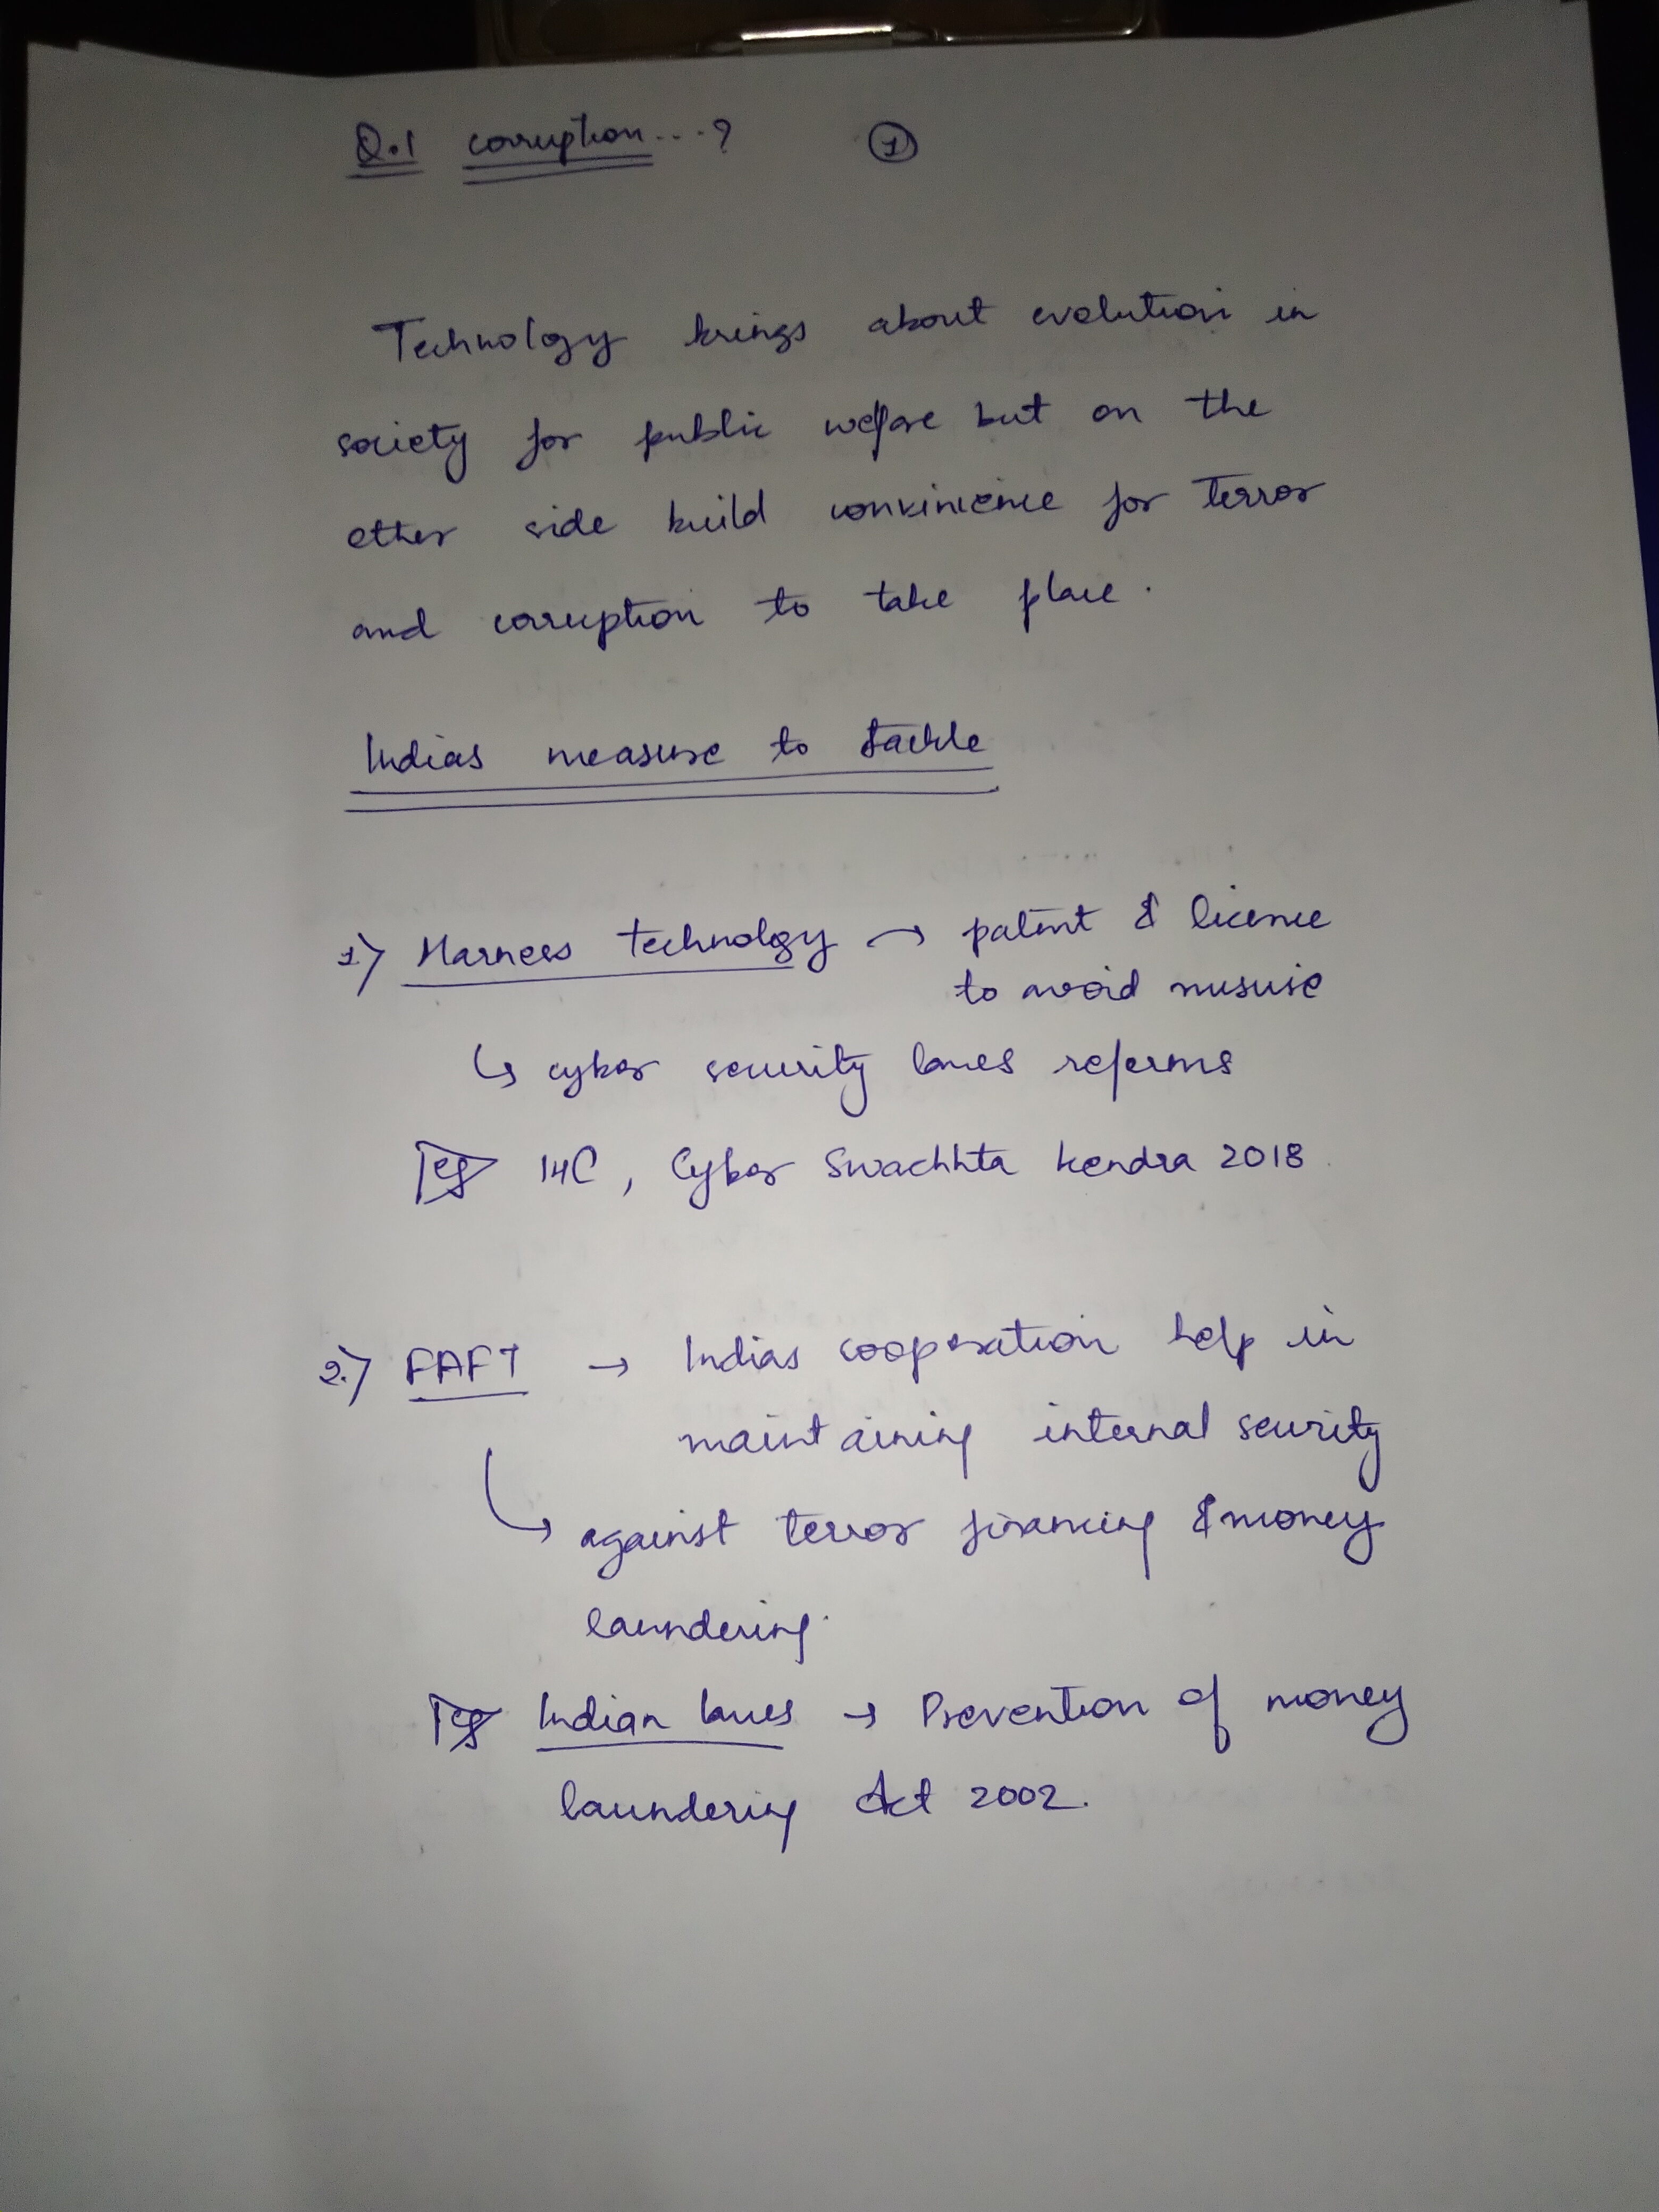 Q.1 corruption...? 1
Technology brings about evolution in
society for public welfare but on the
other side build convinience for terror
and corruption to take place.
Indias measure to tackle
1) Harness technology → patent & licence
to avoid misuse
↳ cyber security laws reforms
eg I4C, Cyber Swachhta Kendra 2018
2.) FAFT → Indias cooperation help in
maintaining internal security
↳ against terror financing & money
laundering.
eg Indian laws → Prevention of money
laundering Act 2002.